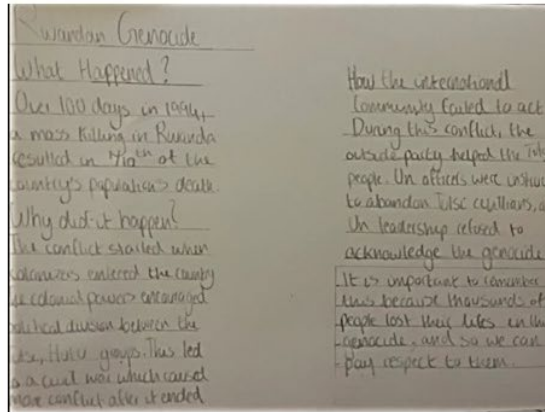 Rwandan Genocide
What Happened?
Over 100 days in 1994,
a mass killing in Rwanda
resulted in 1/10th of the
country's population's death.
Why did it happen?
The conflict started when
colonizers entered the county
colonial powers encouraged
political division between the
Hutu groups. This led
to a civil war which caused
more conflict after it ended
How the international
Community failed to act
During this conflict, the
outside party helped the
people. Un officers were
to abandon civilians,
Un leadership refused to
acknowledge the genocide
It is important to remember
this because thousands of
people lost their lifes in the
genocide, and so we can
pay respect to them.